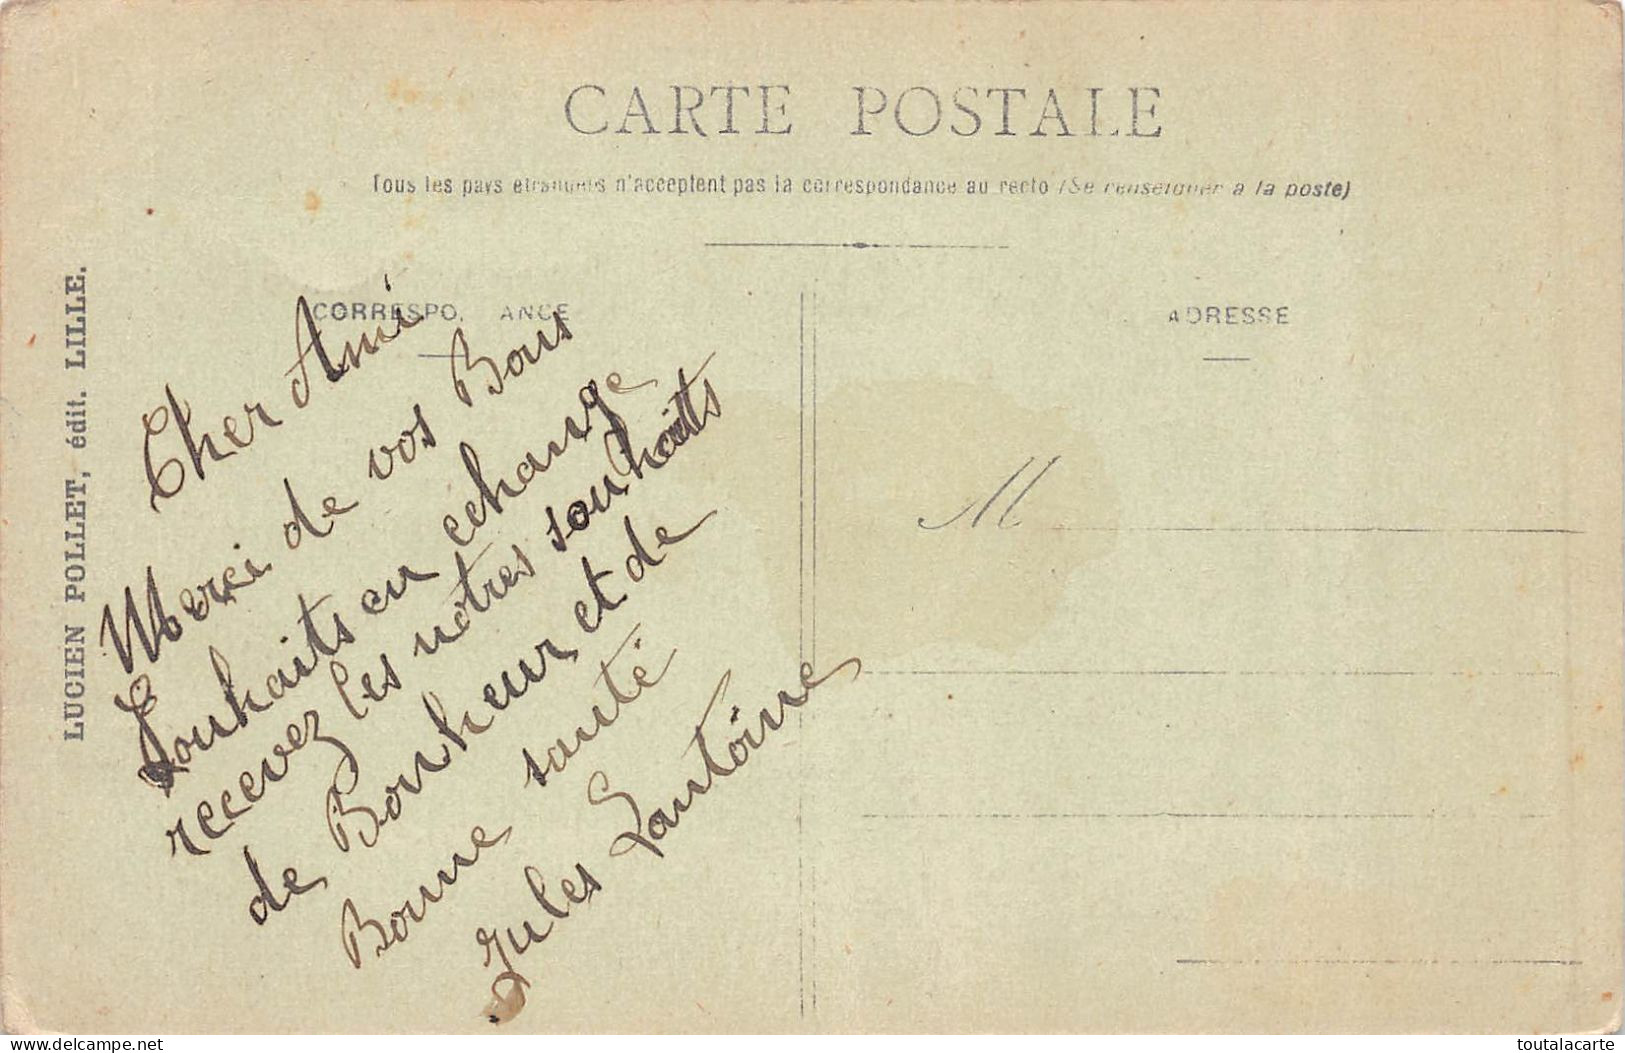 CARTE POSTALE
Tous les pays étrangers n'acceptent pas la correspondance au recto (Se renseigner à la poste)
CORRESPO. ANCE
ADRESSE
LUCIEN POLLET, édit. LILLE.
Cher Ami
Merci de vos Bons
Souhaits en echange
recevez les notres souhaits
de Bonheur et de
Bonne santé
Jules Lantoine
M
delcampe.net
toutalacarte